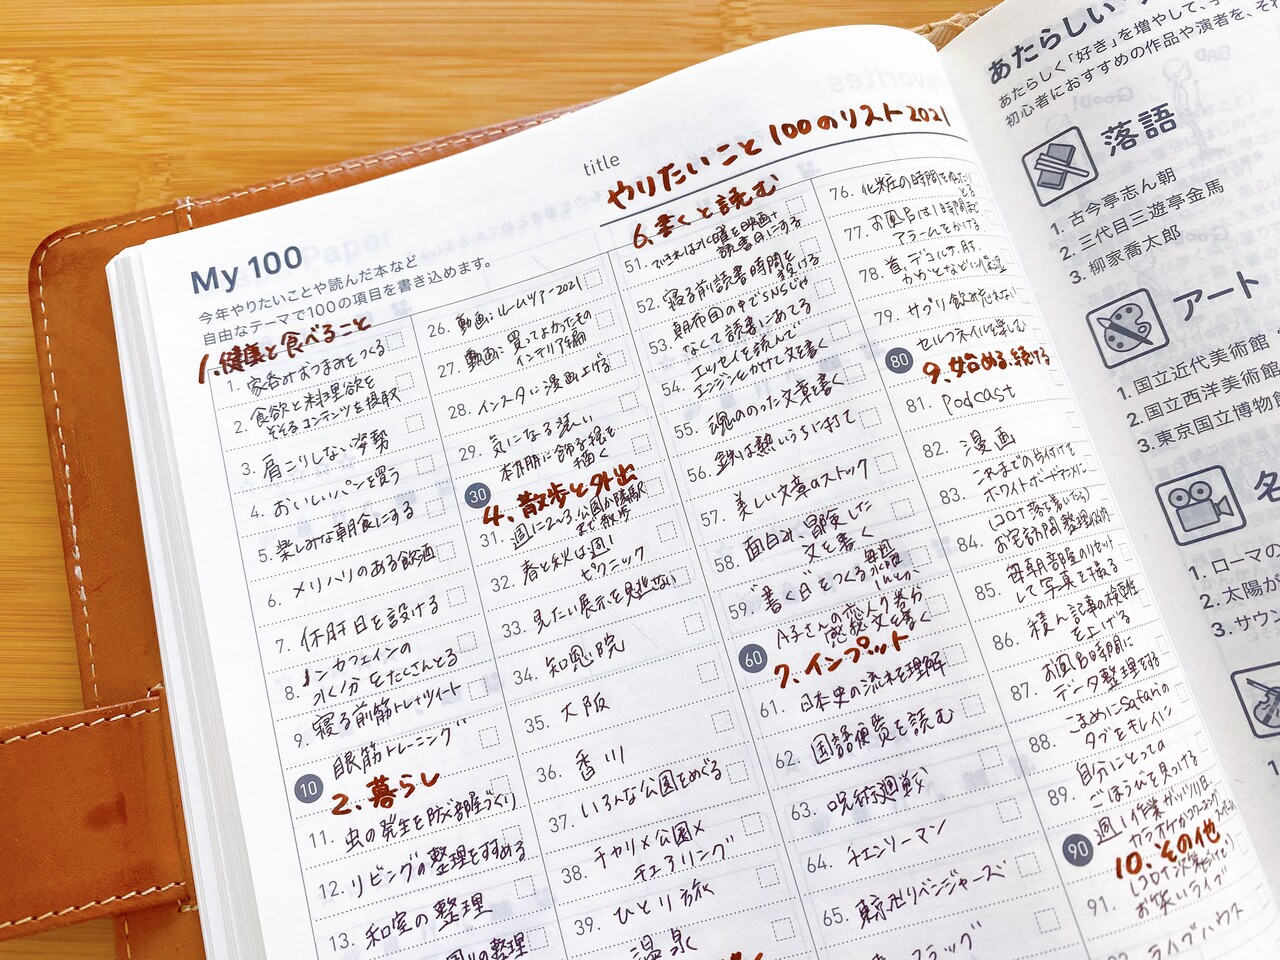 title
やりたいこと 100のリスト2021
My 100
今年やりたいことや読んだ本など
自由なテーマで100の項目を書き込めます。
1.健康と食べること
1. 家呑みおつまみをつくる
2. 食欲と料理欲を
そそるコンテンツを摂取
3. 肩こりしない姿勢
4. おいしいパンを買う
5. 楽しみな朝食にする
6. メリハリのある飲酒
7. 休肝日を設ける
8. ノンカフェインの
水分をたくさんとる
9. 寝る前筋トレ
10 眼筋トレーニング
2.暮らし
11. 虫の発生を防ぐ部屋づくり
12. リビングの整理をすすめる
13. 和室の整理
の整理
26. 動画:ルームツアー2021
27. 動画:買ってよかったもの
インテリア編
28. インスタに漫画上げる
29. 気になる装い
30
4.散歩と外出
31. 週に2〜3、公園か隣駅
まで散歩
32. 春と秋は週1
ピクニック
33. 見たい展示を見逃さない
34. 知恩院
35. 大阪
36. 香川
37. いろんな公園をめぐる
38. チャリ×公園×
チェアリング
39. ひとり旅
温泉
6.書くと読む
51. できれば水曜を映画+
読書日にする
52. 寝る前読書時間を
設ける
53. 朝布団の中でSNSじゃ
なくて読書にあてる
54. エッセイを読んで
エンジンをかけて文を書く
55. 魂ののった文章を書く
56. 鉄は熱いうちに打て
57. 美しい文章のストック
58. 面白み、冒険した
文を書く
59. "書く日"をつくる 毎週
水曜
60 A子さんの恋人7巻分
感想文を書く
7.インプット
61. 日本史の流れを理解
62. 国語便覧を読む
63. 呪術廻戦
64. チェンソーマン
65. 東京卍リベンジャーズ
76. 化粧の時間を
とる
77. お風呂は1時間前
アラームをかける
78. 首、デコルテ、肘、
かかとなどに保湿
79. サプリ飲み忘れない
80 セルフネイルを楽しむ
9.始める、続ける
81. Podcast
82. 漫画
83. これまでの片付けを
ホワイトボードアニメに
84. (コロナ落ち着いたら)
お宅訪問 整理収納
85. 毎朝部屋のリセット
して写真を撮る
86. 積ん記事の検索性
を上げる
87. お風呂時間に
データ整理をする
88. こまめにSafariの
タブをキレイに
89. 自分にとっての
ごほうびを見つける
90 週1作業ガッツリ日、
10.その他
91. (コロナ次第だけど)
お笑いライブ
ライブハウス
あたらしい
あたらしく「好き」を増やして、
初心者におすすめの作品や演者を、それ
落語
1. 古今亭志ん朝
2. 三代目三遊亭金馬
3. 柳家喬太郎
アート
1. 国立近代美術館
2. 国立西洋美術館
3. 東京国立博物館
名
1. ローマの
2. 太陽が
3. サウン
1